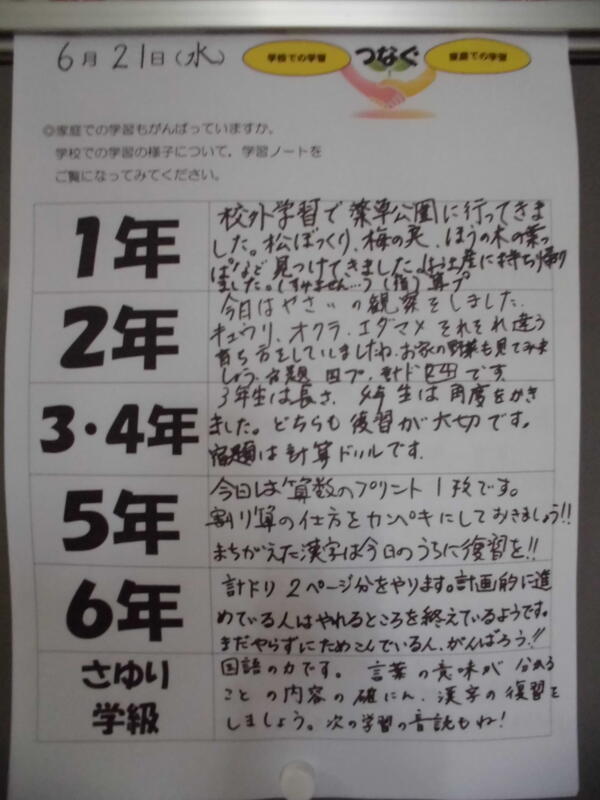 6月21日(水)
学校での学習 つなぐ 家庭での学習
◎家庭での学習もがんばっていますか。
学校での学習の様子について,学習ノートを
ご覧になってみてください。
1年
校外学習で薬草公園に行ってきま
した。松ぼっくり、梅の実、ほうの木の葉っ
ぱなど見つけてきました。お土産に持ち帰り
ました。(すみません…) (宿)算プ
2年
今日はやさいの観察をしました。
キュウリ、オクラ、エダマメ それぞれ違う
育ち方をしていましたね。お家の野菜も見てみま
しょう。宿題 国プ、計ド です。
3・4年
3年生は長さ、4年生は角度をかき
ました。どちらも復習が大切です。
宿題は計算ドリルです。
5年
今日は算数のプリント1枚です。
割り算の仕方をカンペキにしておきましょう!!
まちがえた漢字は今日のうちに復習を!!
6年
計ドリ 2ページ分をやります。計画的に進
めている人はやれるところを終えているようです。
まだやらずにためこんでいる人、がんばろう!!
さゆり
学級
国語の力です。言葉の意味が分かる
ことの内容の確にん、漢字の復習を
しましょう。次の学習の音読もね!